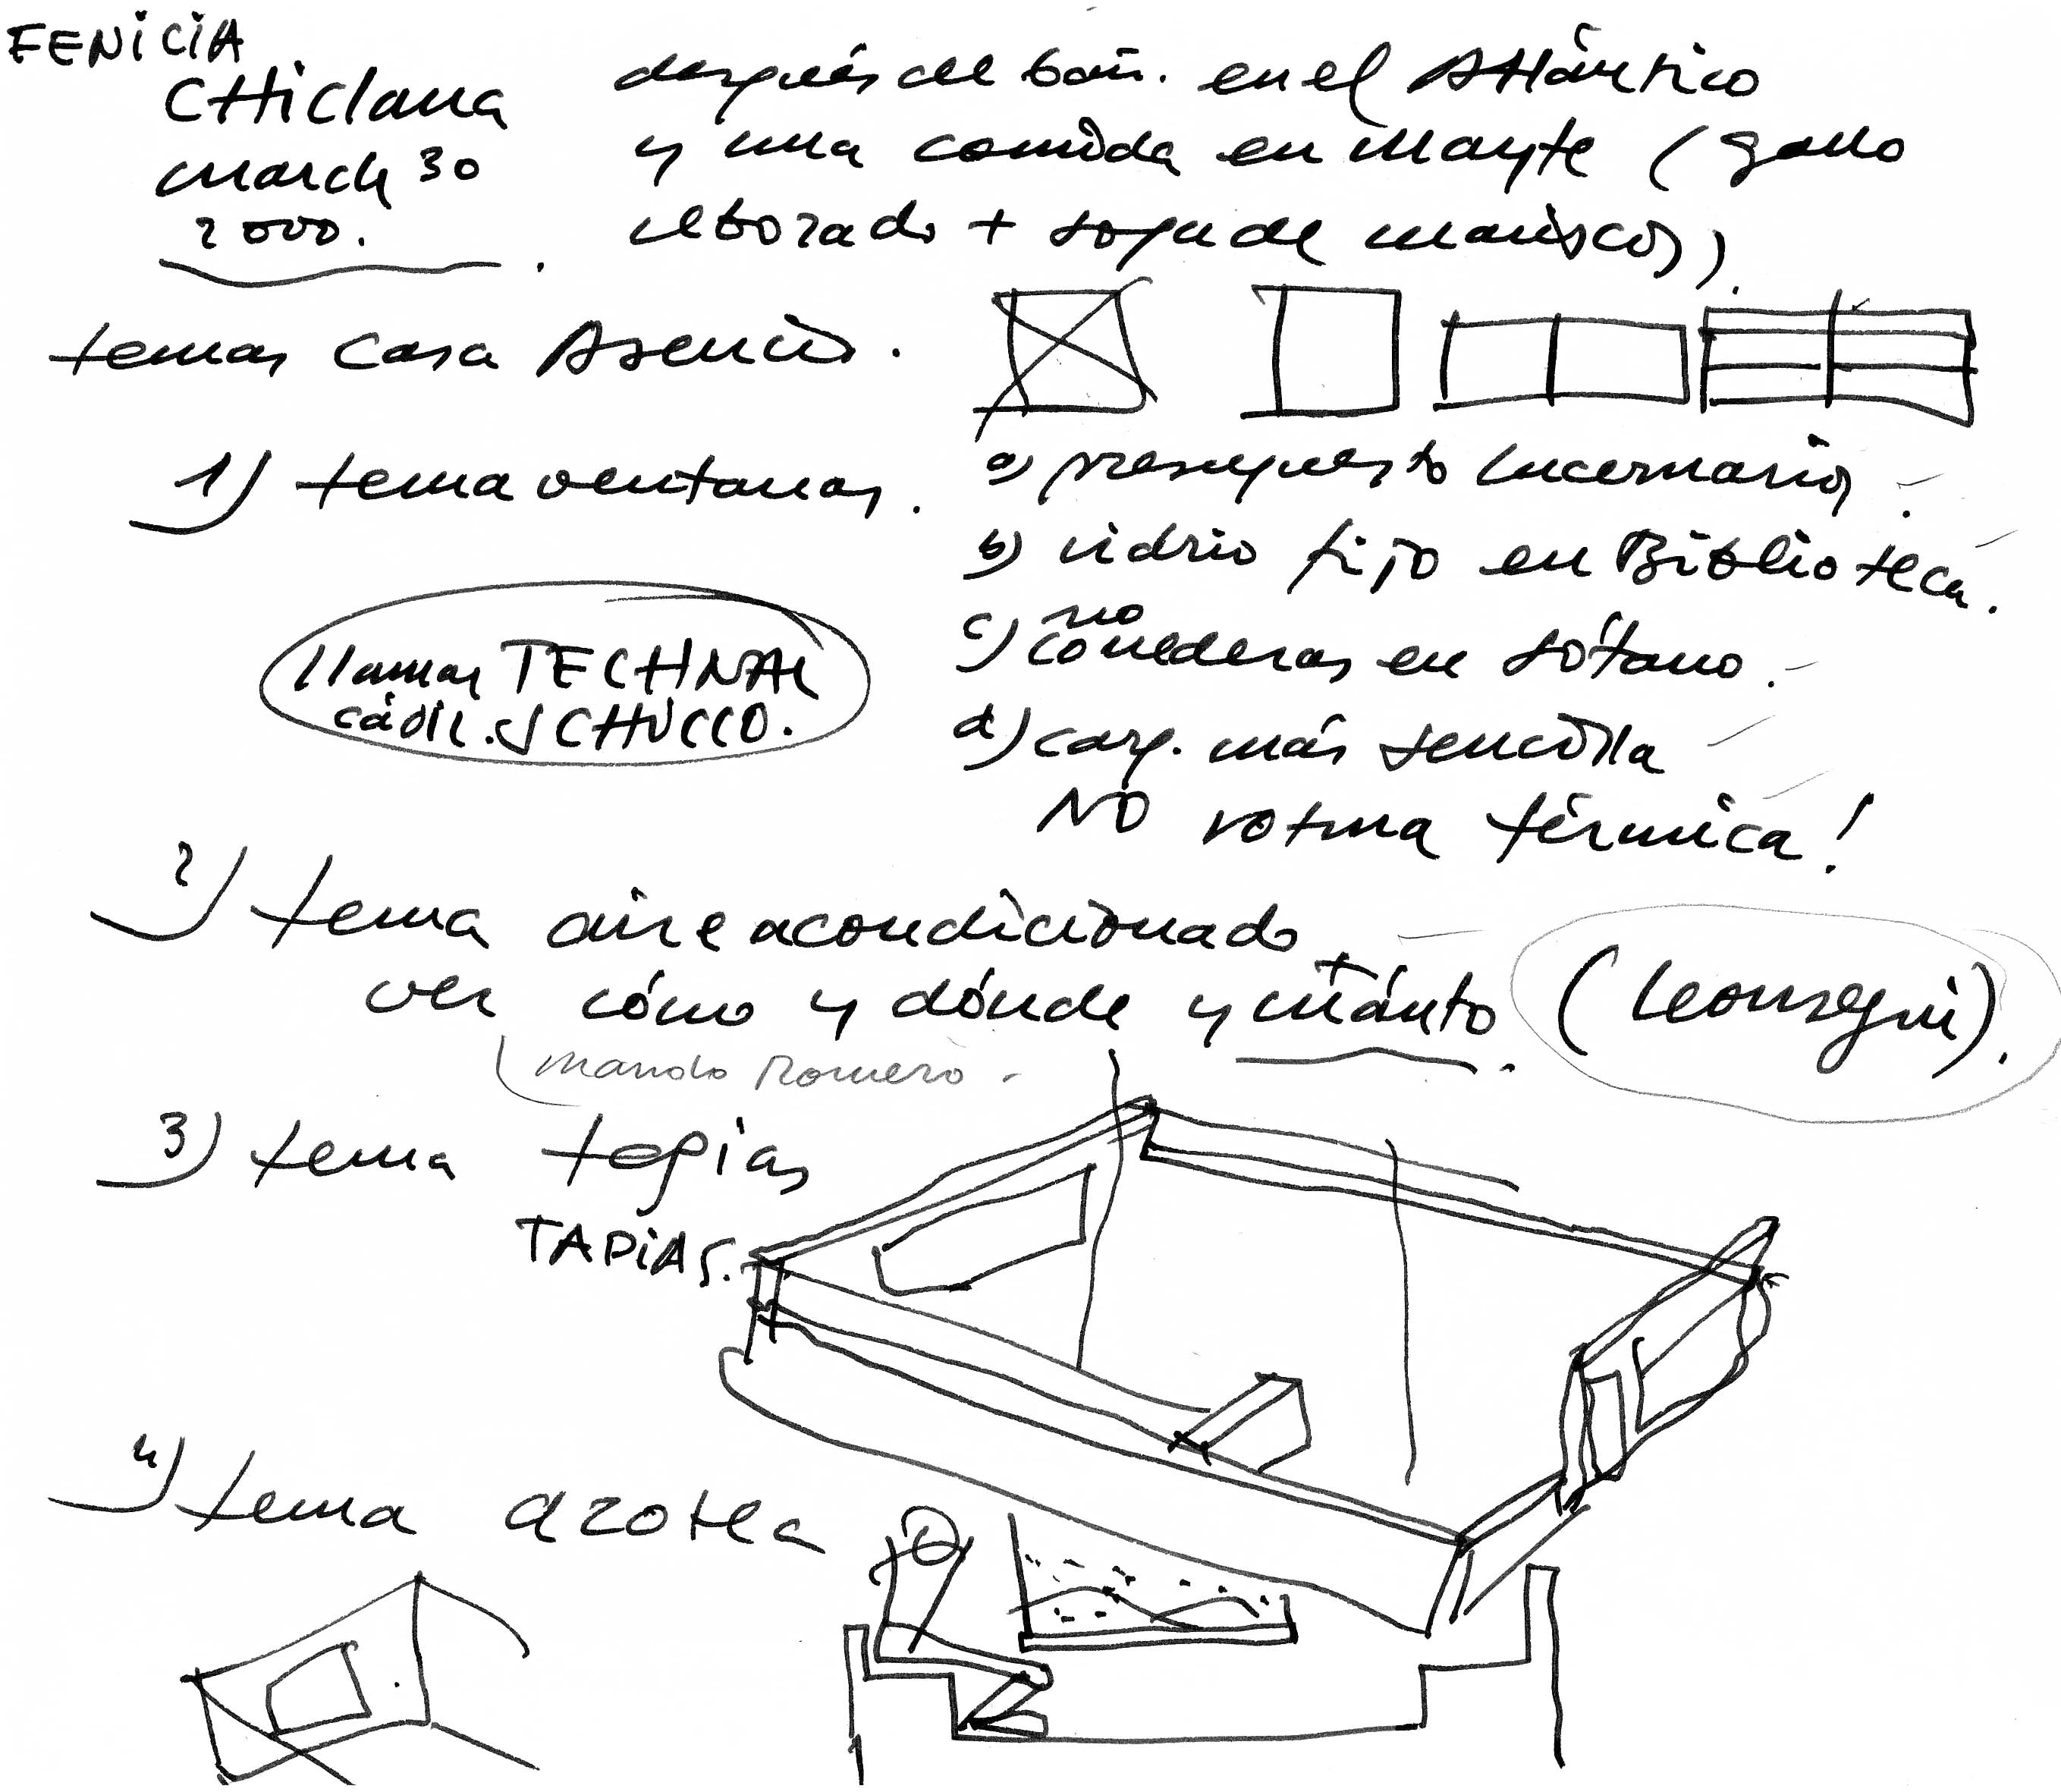 FENiCiA
CHiclana
march 30
2000.
después del bañ. en el Atlántico
y una comida en Mayte (gallo
rebozado + sopa de mariscos).
temas casa Asencio.
1) tema ventanas.
a) presupuesto lucernarios
b) vidrio fijo en Biblioteca.
c) no correderas en sótano.
d) carp. más sencilla
NO rotura térmica!
llamar TECHNAL
cádiz. SCHÜCCO.
2) tema aire acondicionado
ver cómo y dónde y cuánto.
mando Romero
3) tema tapias
TAPiAS.
4) tema azotea